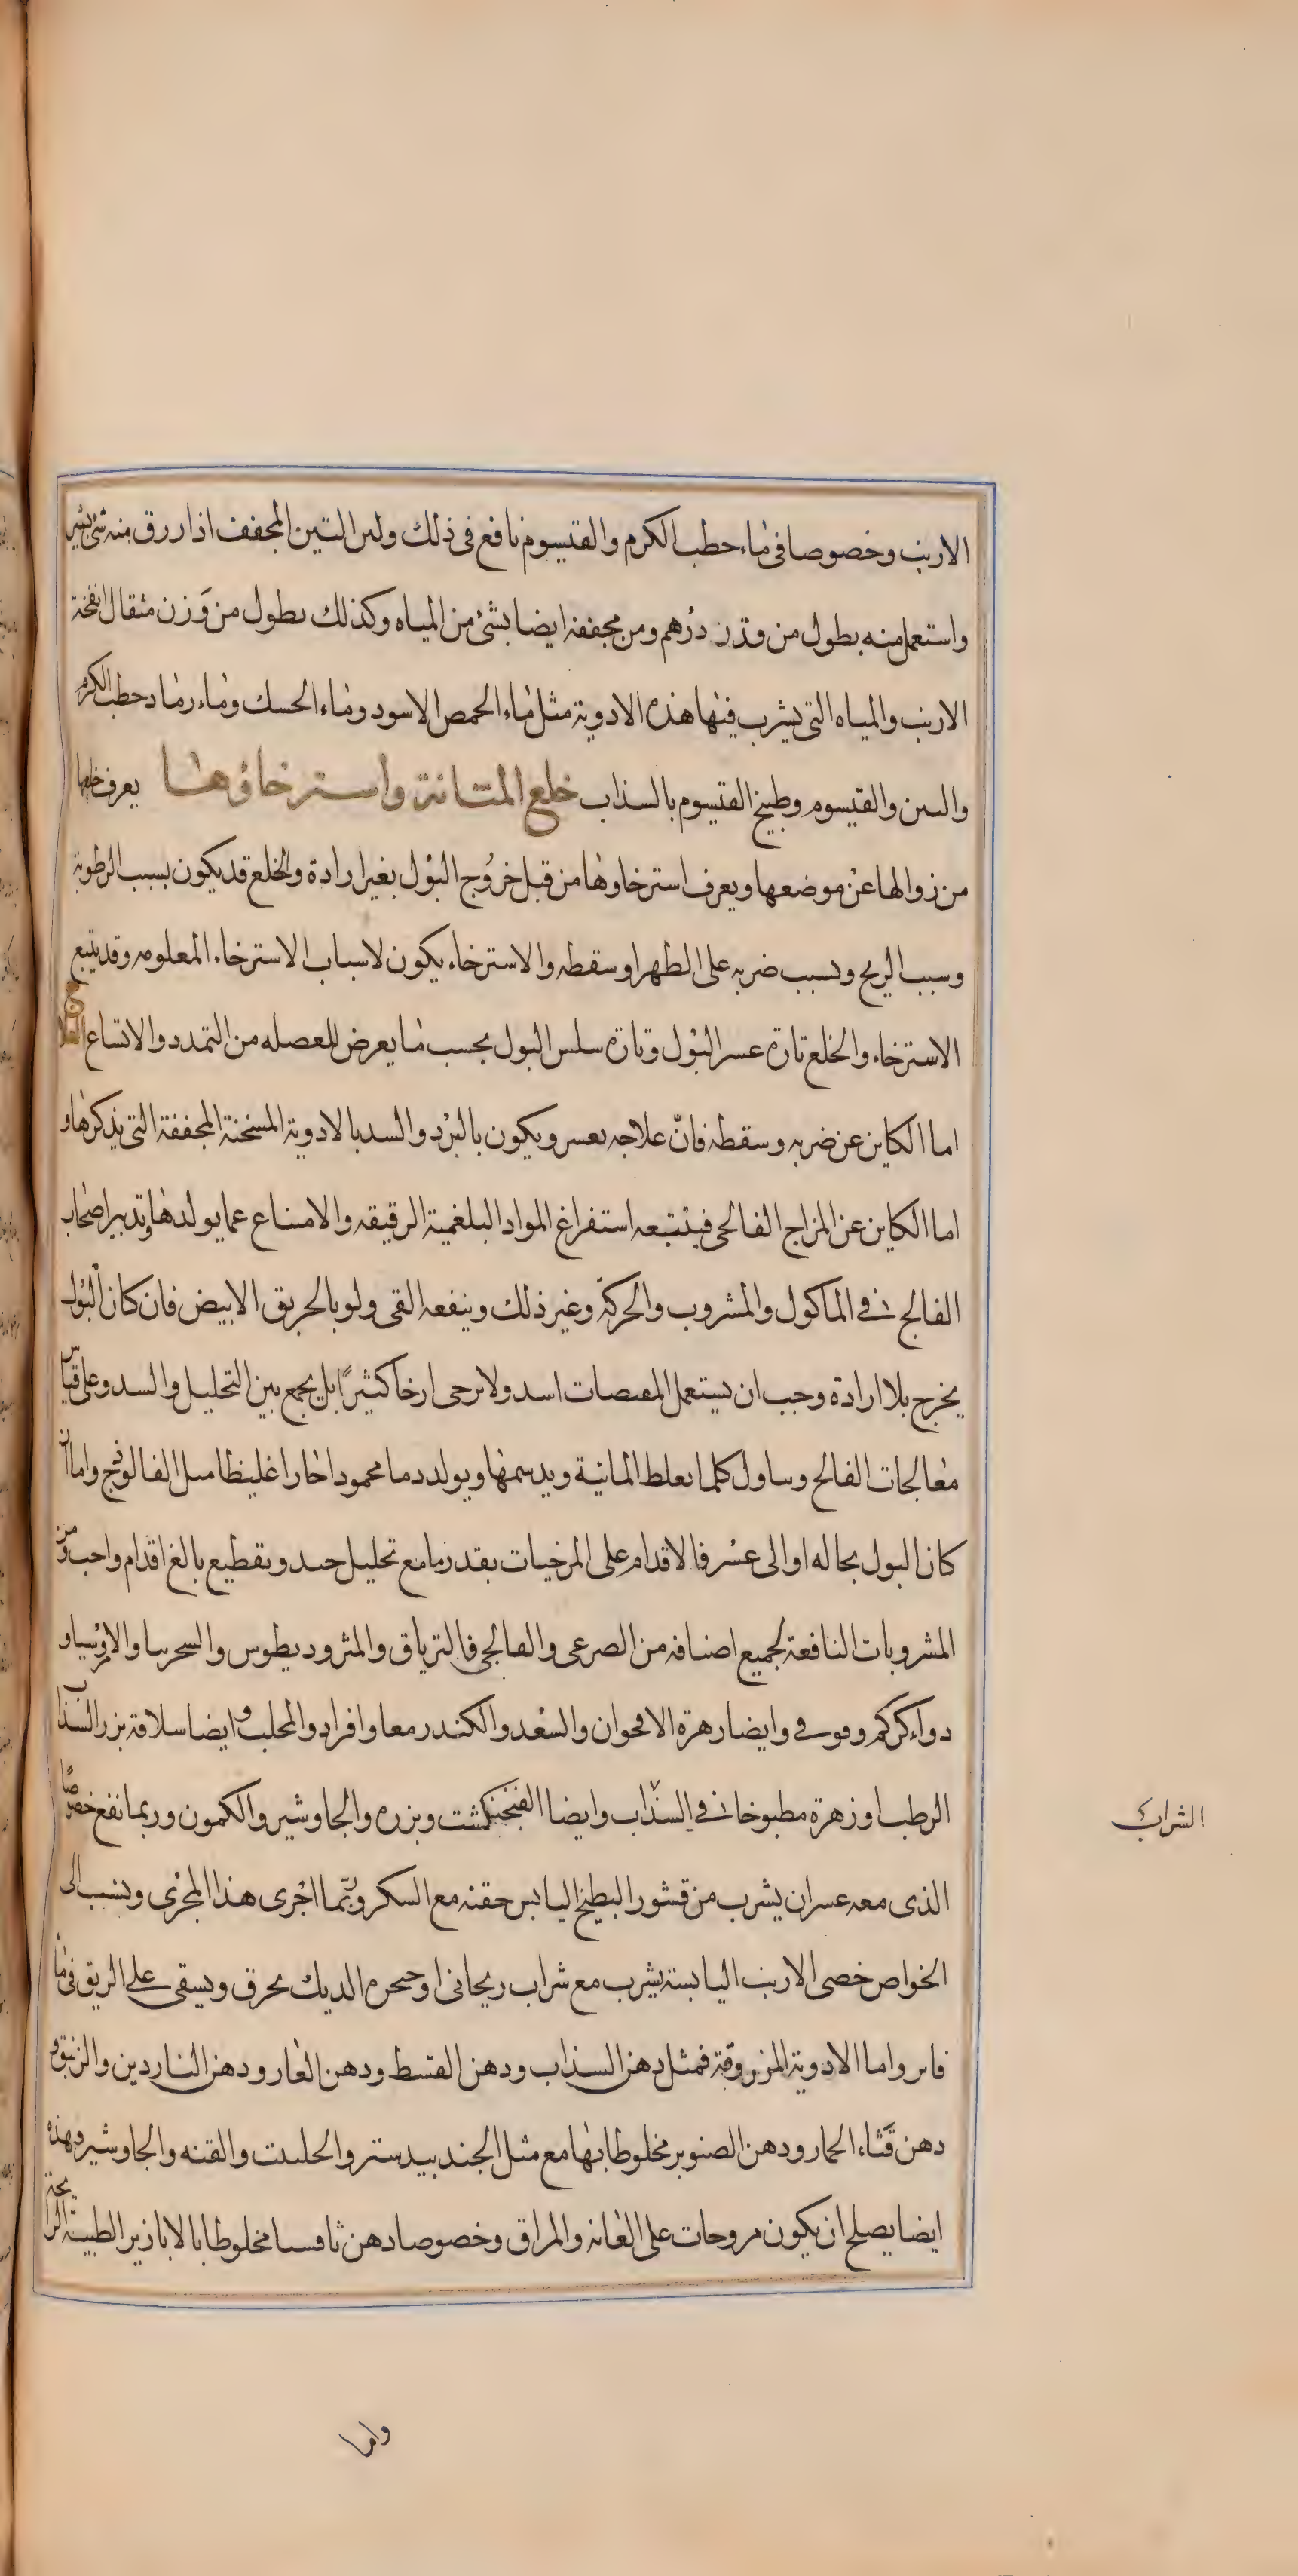 الارنب وخصوصا فى ماء حطب الكرم والقيسوم نافع فى ذلك ولبن التين المجفف اذا زرق منه شئ يسير
واستعمل منه بطول من وقدر درهم ومن مجففه ايضا بشئ من المياه وكذلك بطول من وزن مثقال انفخة
الارنب والمياه التى يشرب فيها هذه الادوية مثل ماء الحمص الاسود وماء الحسك وماء رماد حطب الكرم
والتين والقيسوم وطبيخ القيسوم بالسذاب خلع المثانة واسترخاؤها يعرف خلعها
من زوالها عن موضعها ويعرف استرخاوها من قبل خروج البول بغير ارادة والخلع قد يكون بسبب الرطوبة
وسبب الريح وبسبب ضربه على الظهر او سقطه والاسترخاء يكون لاسباب الاسترخاء المعلومه وقد يتبع
الاسترخاء والخلع تارة عسر البول وتارة سلس البول بحسب ما يعرض للعصله من التمدد والاتساع العلاج
اما الكاين عن ضربه وسقطه فانّ علاجه يعسر ويكون بالبرد والسد بالادوية المسخنة المجففة التى يذكرها و
اما الكاين عن المزاج الفالجى فينتبعه استفراغ المواد البلغمية الرقيقه والامتناع عما يولدها وتدبير اصحاب
الفالج فى الماكول والمشروب والحركة وغير ذلك وينفعه القى ولو بالخربق الابيض فان كان البول
يخرج بلا ارادة وجب ان يستعمل المقبضات اشد ولا يرخى ارخا كثيرًا بل يجمع بين التحليل والسد وعلى قياس
معالجات الفالج وتناول كلما يغلظ المانية ويدسمها ويولد دما محمودا حارا غليظا مثل الفالوذج واما ان
كان البول بحاله او الى عسر فالاقدام على المرخيات بقدر ما مع تحليل جيد وتقطيع بالغ اقدام واجب ومن
المشروبات النافعة لجميع اصنافه من الصرعى والفالجى فالترياق والمثروديطوس والسحرينا والامروسيا و
دواء كركم وفوفى وايضا زهرة الاقحوان والسعد والكندر معا وافراد والمحلب وايضا سلاقة بزر السذاب
الرطب او زهرة مطبوخا فى السذاب وايضا الفنجنكشت وبزره والجاوشير والكمون وربما نفع خصوصًا
الشراب
الذى معه عسر ان يشرب من قشور البطيخ اليابس حقنه مع السكر وربّما اجرى هذا المجرى وينسب الى
الخواص خصى الارنب اليابسة يشرب مع شراب ريحانى او حنجره الديك يحرق ويسقى على الريق فى ماء
فاتر واما الادوية المزروقة فمثل دهن السذاب ودهن القسط ودهن الغار ودهن الناردين والزنبق و
دهن قثاء الحمار ودهن الصنوبر مخلوطا بها مع مثل الجندبيدستر والحلتيت والقنه والجاوشير وهذه
ايضا يصلح ان يكون مروحات على العانه والمراق وخصوصا دهن ثافسيا مخلوطا بالابازير الطيبة الرايحة
واما